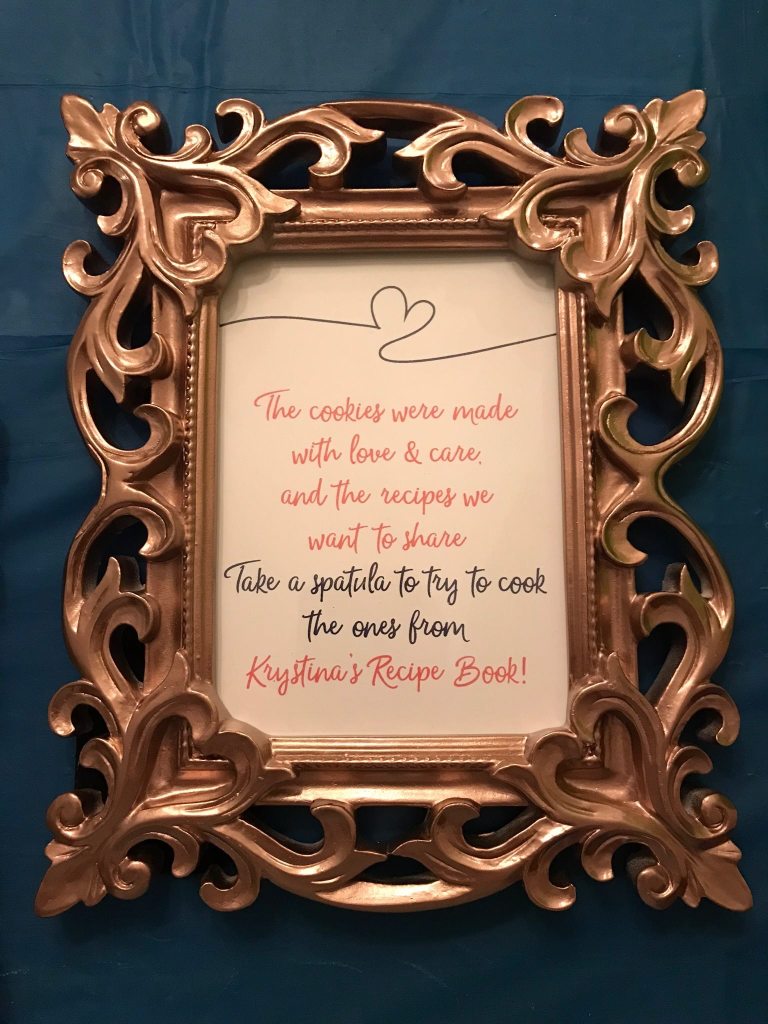 The cookies were made
with love & care,
and the recipes we
want to share
Take a spatula to try to cook
the ones from
Krystina's Recipe Book!